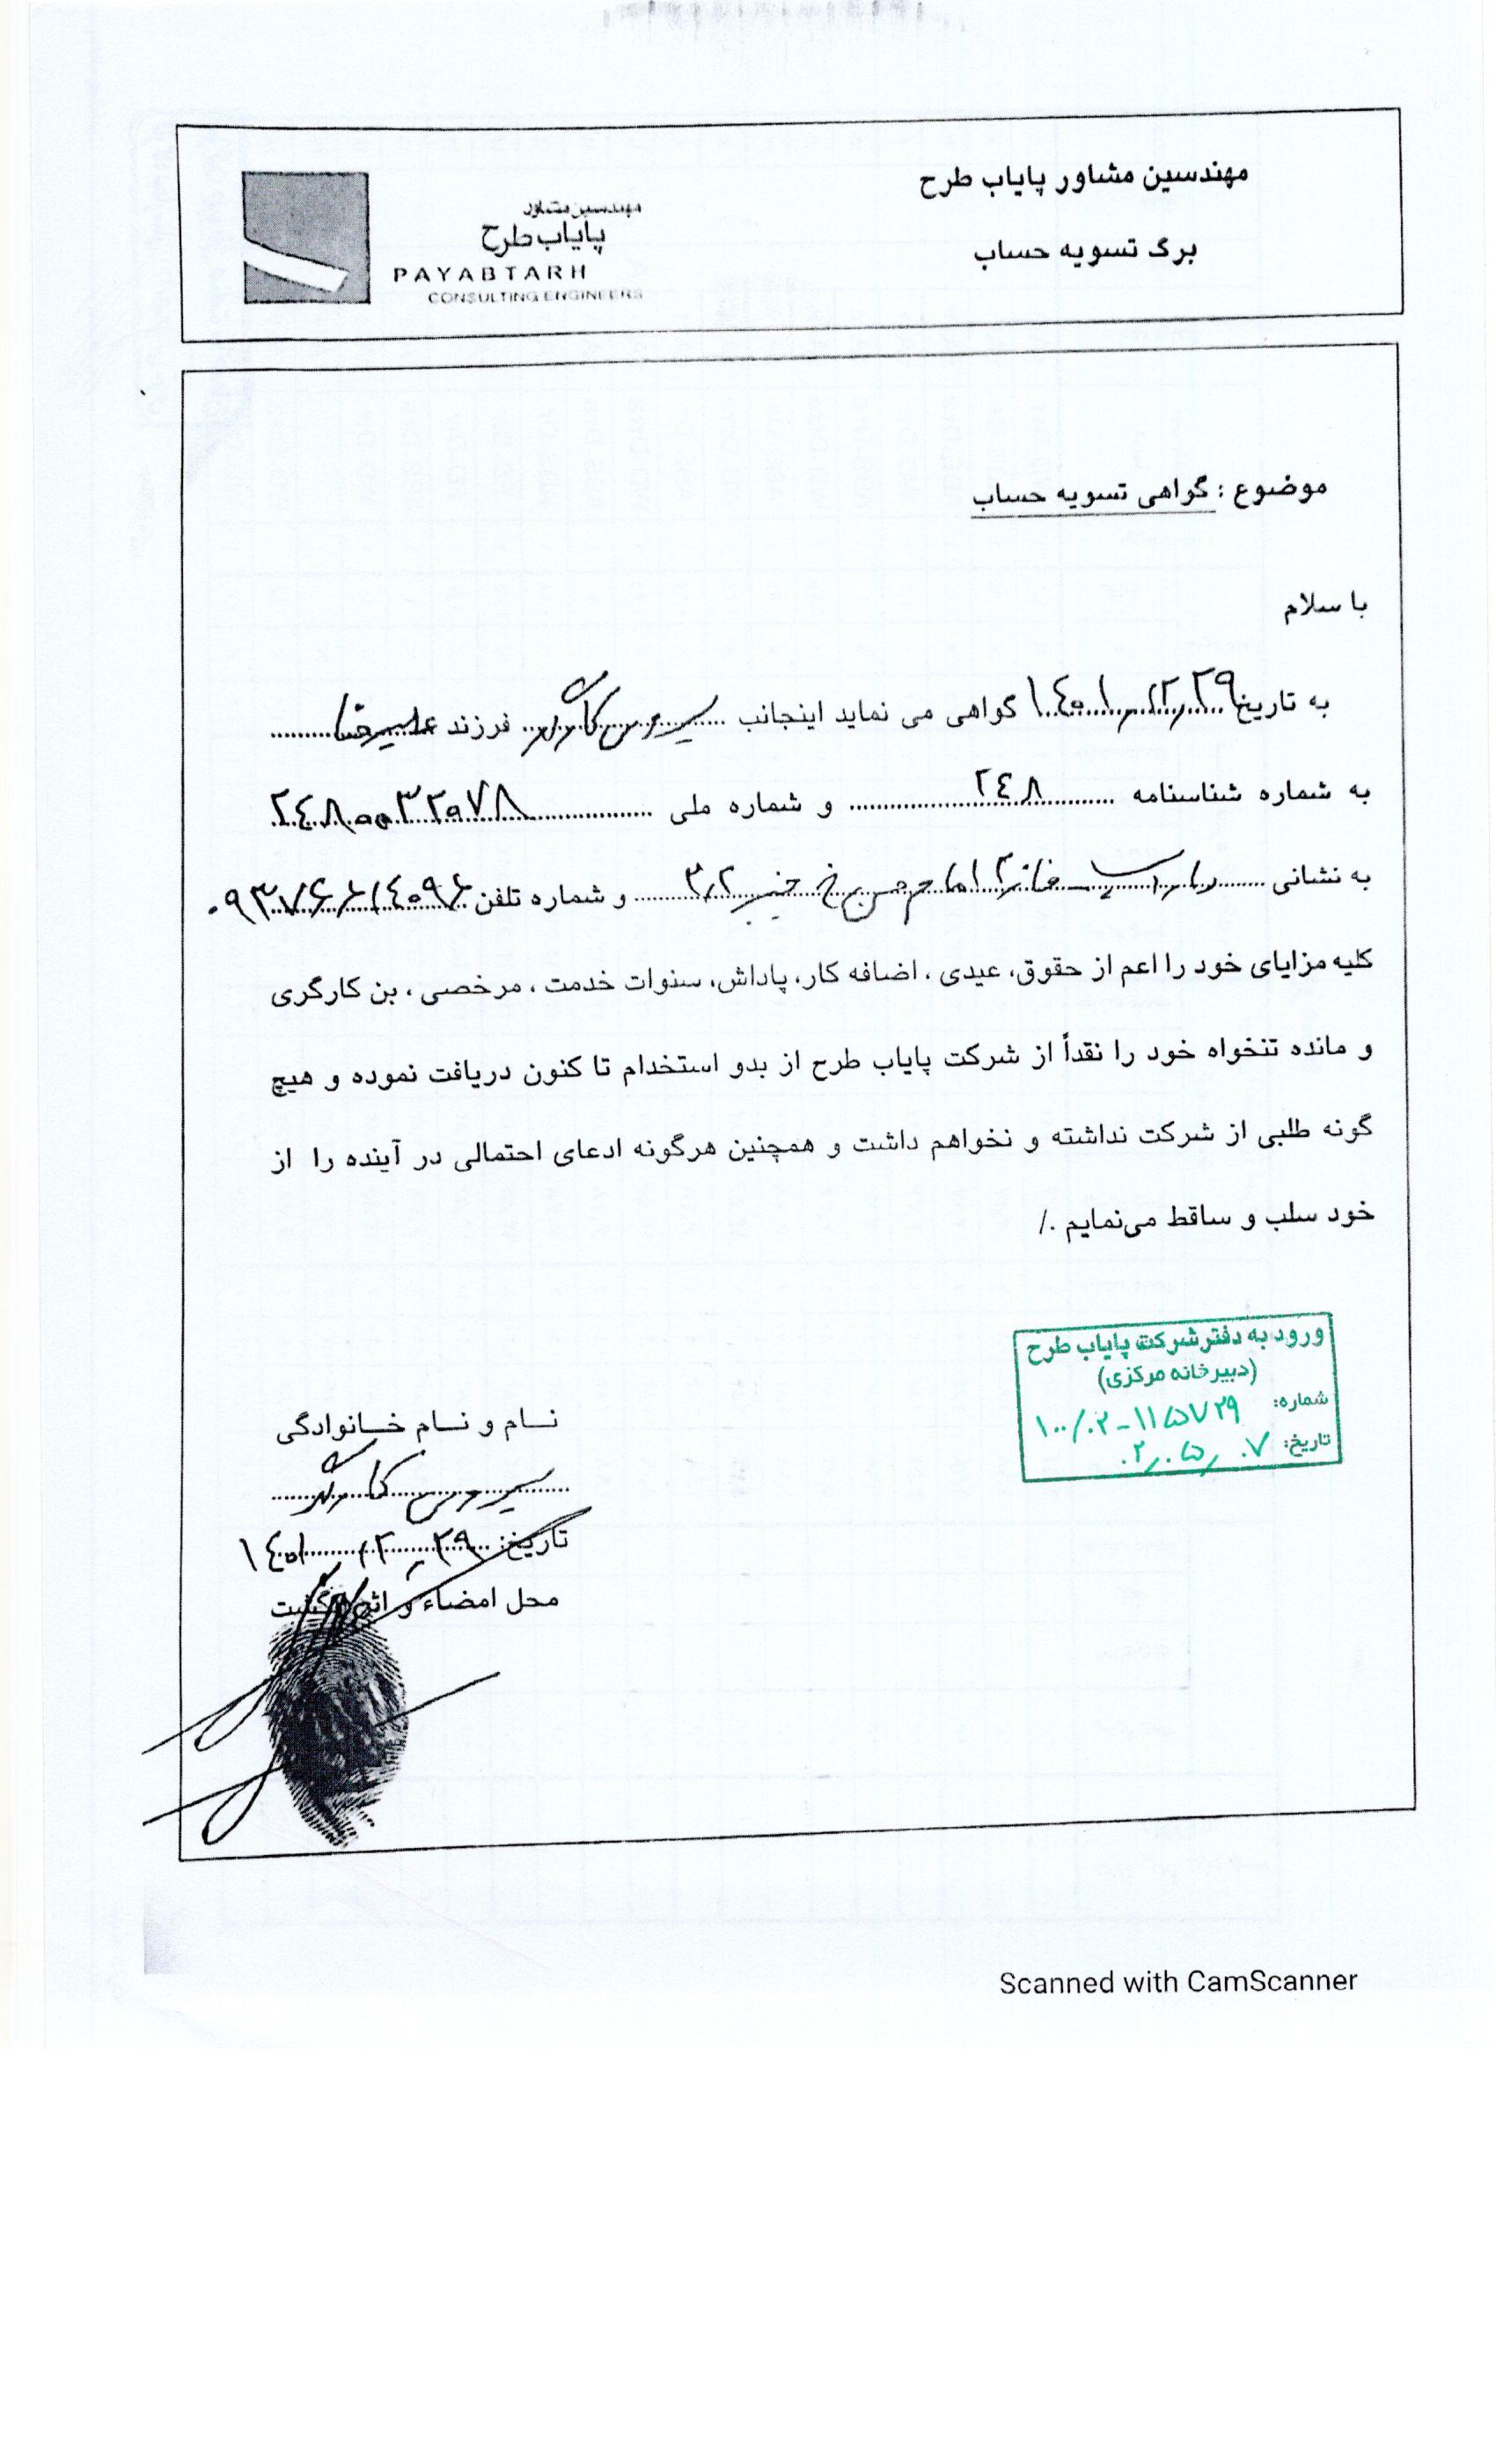 مهندسین مشاور پایاب طرح
برگ تسویه حساب
مهندسین مشاور
پایاب طرح
PAYABTARH
CONSULTING ENGINEERS
موضوع : گواهی تسویه حساب
با سلام
به تاریخ ۱۴۰۱٫۱۲٫۲۹ گواهی می نماید اینجانب سیروس فرزند علیرضا
به شماره شناسنامه ۲۴۸ و شماره ملی ۲۴۸۰۰۳۲۰۷۸
به نشانی امام و شماره تلفن ۰۹۳۷۶۶۱۴۰۹۶
کلیه مزایای خود را اعم از حقوق، عیدی ، اضافه کار، پاداش، سنوات خدمت ، مرخصی ، بن کارگری
و مانده تنخواه خود را نقداً از شرکت پایاب طرح از بدو استخدام تا کنون دریافت نموده و هیچ
گونه طلبی از شرکت نداشته و نخواهم داشت و همچنین هرگونه ادعای احتمالی در آینده را از
خود سلب و ساقط می‌نمایم ./
ورود به دفتر شرکت پایاب طرح
(دبیرخانه مرکزی)
شماره: ۱۰۰/۰۲-۱۱۵۷۲۹
تاریخ: ۰۲٫۰۵٫۰۷
نام و نام خانوادگی
سیروس
تاریخ: ۱۴۰۱٫۱۲٫۲۹
محل امضاء و اثر انگشت
Scanned with CamScanner